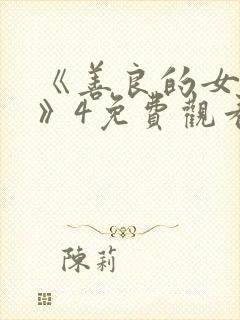 《善良的女
》4免費觀看
陳莉